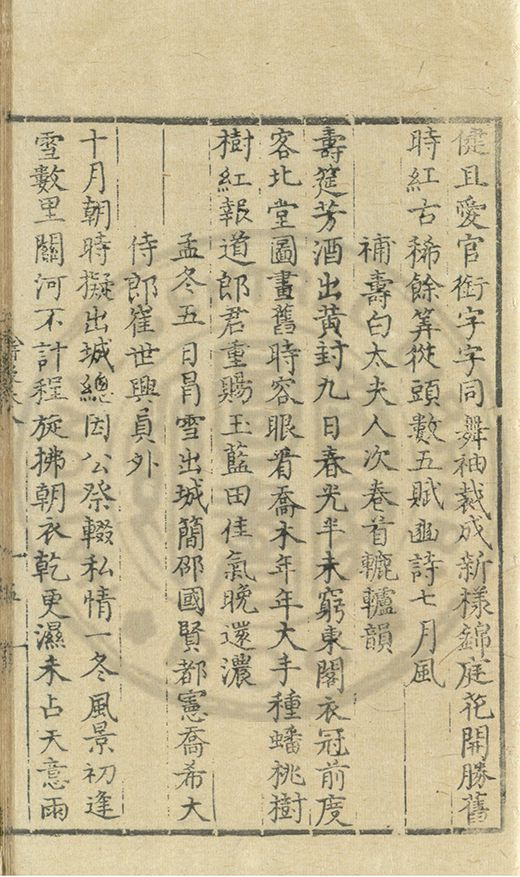 健且愛官銜字字同舞袖裁成新様錦庭花開勝舊
時紅古稀餘筭從頭數五賦豳詩七月風
補壽白太夫人次卷首轆轤韻
壽筵芳酒出黃封九日春光半未窮東閣衣冠前度
客北堂圖畫舊時容眼看喬木年年大手種蟠桃樹
樹紅報道郎君重賜玉藍田佳氣晚還濃
孟冬五日冐雪出城簡邵國賢都憲喬希大
侍郎崔世興員外
十月朝時擬出城總因公祭輟私情一冬風景初逢
雪數里關河不計程旋拂朝衣乾更濕未占天意雨